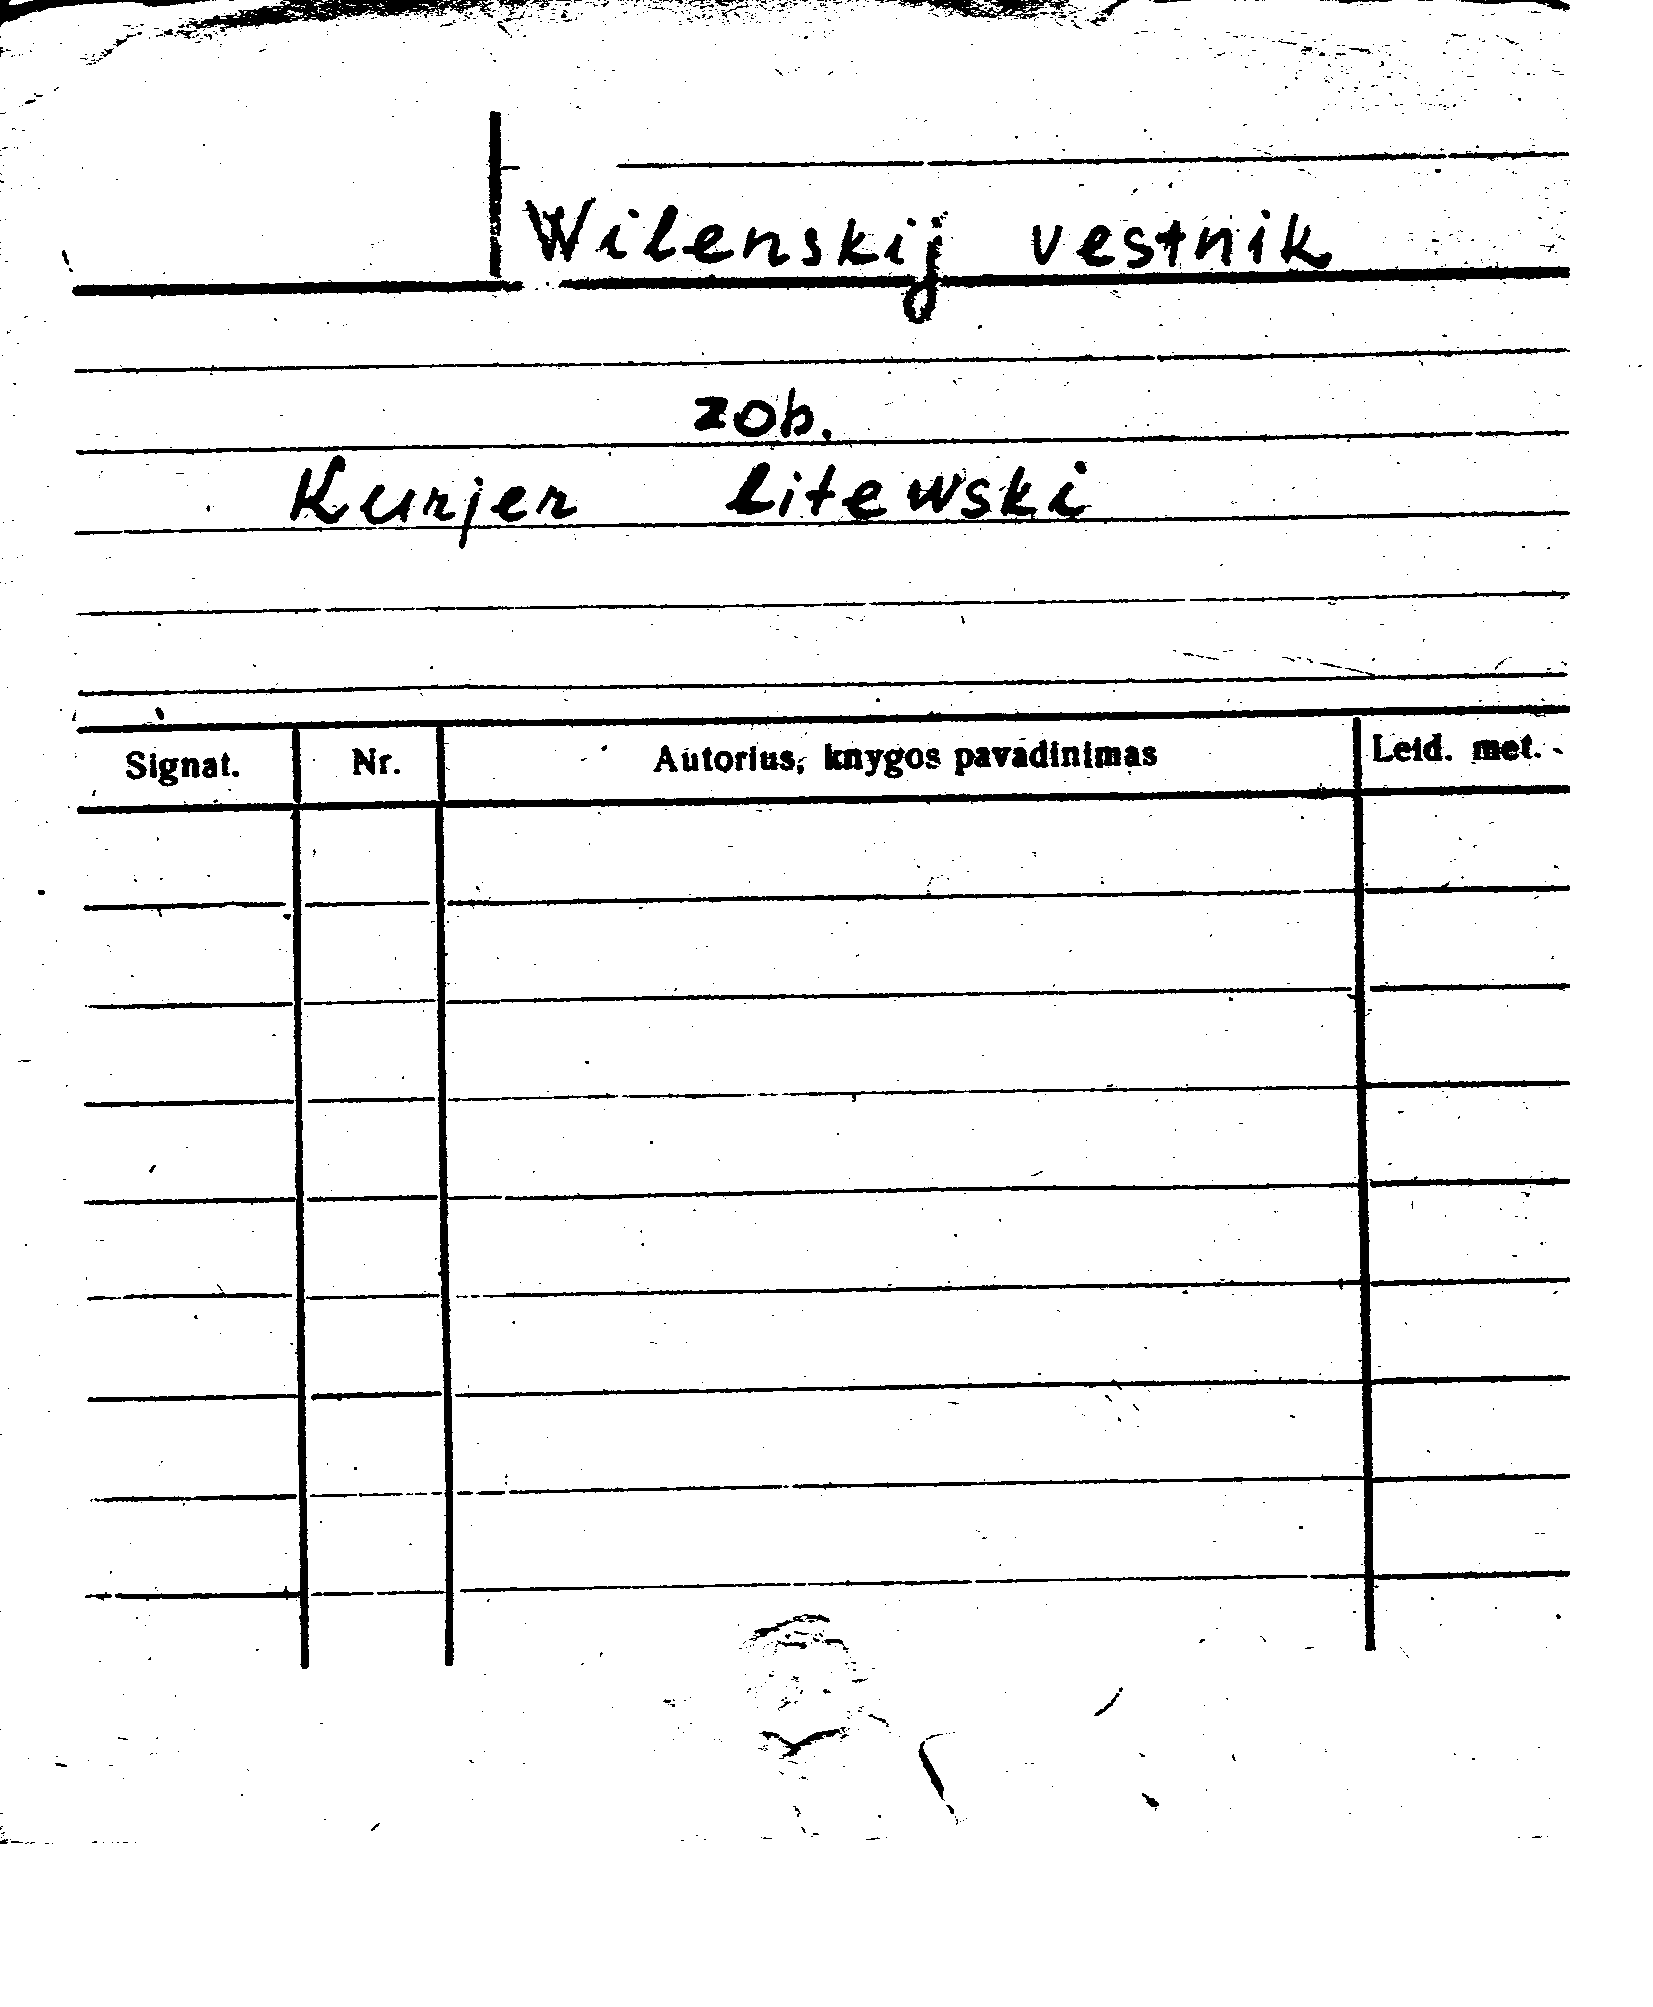 Wilenskij vestnik
zob.
Kurjer Litewski
Signat. Nr. Autorius, knygos pavadinimas Leid. met.